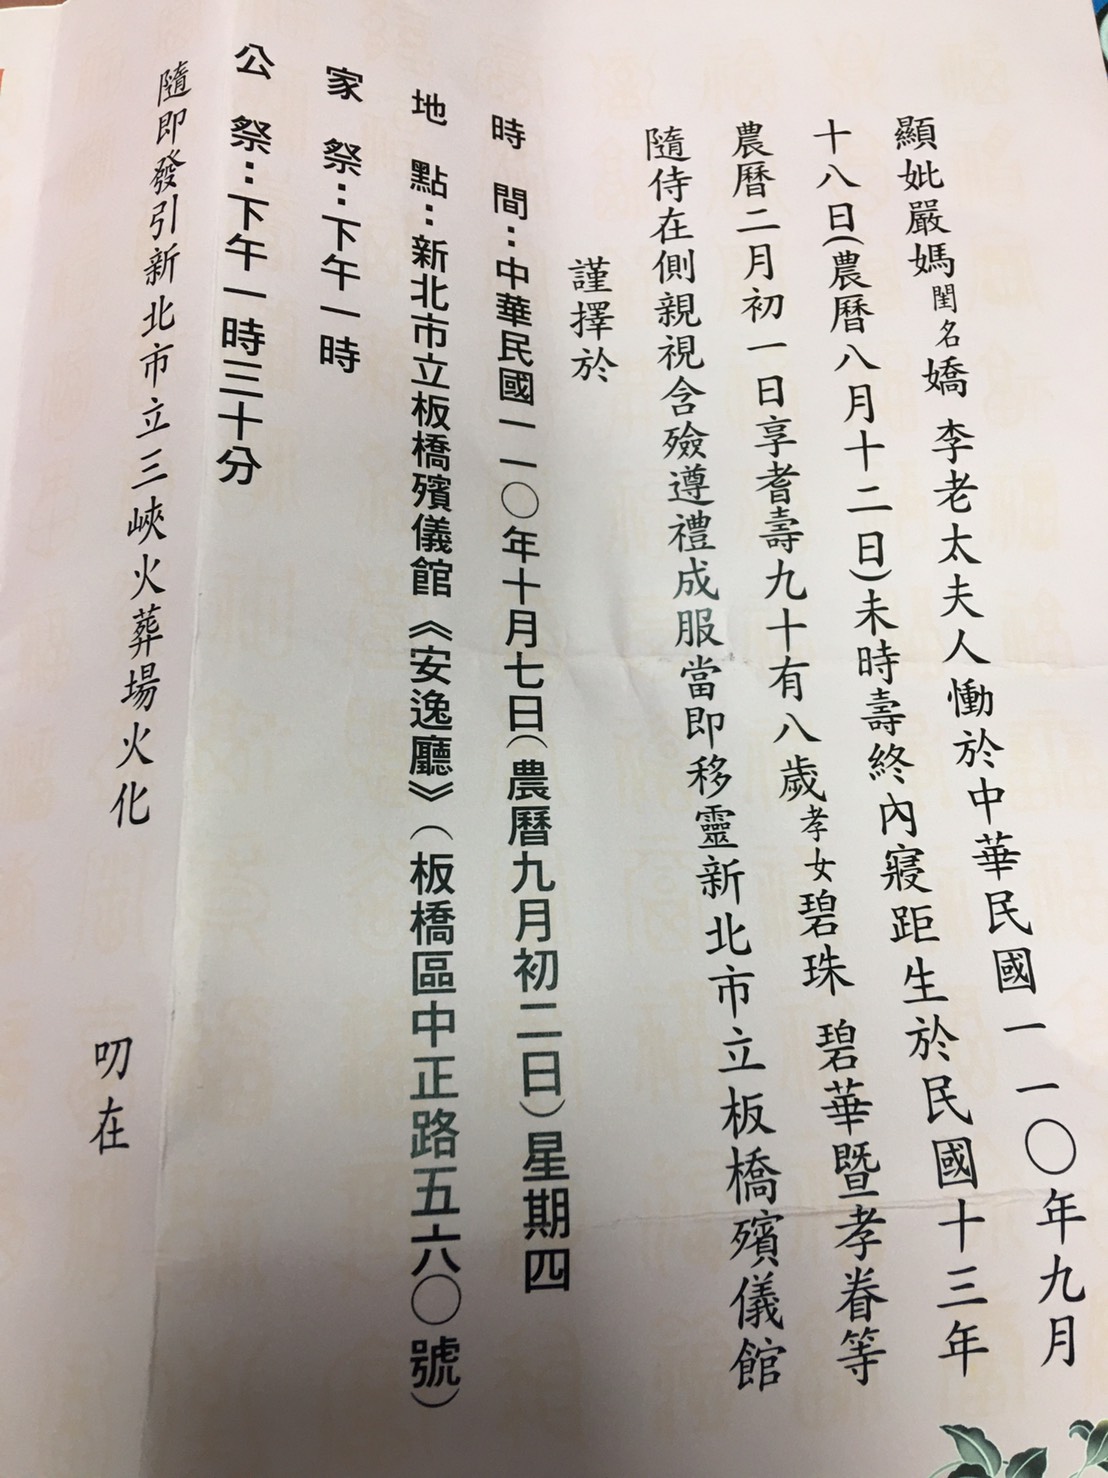 顯妣嚴媽閨名嬌 李老太夫人慟於中華民國一一〇年九月
十八日(農曆八月十二日)未時壽終內寢距生於民國十三年
農曆二月初一日享耆壽九十有八歲孝女碧珠 碧華暨孝眷等
隨侍在側親視含殮遵禮成服當即移靈新北市立板橋殯儀館
謹擇於
時 間：中華民國一一〇年十月七日(農曆九月初二日)星期四
地 點：新北市立板橋殯儀館《安逸廳》(板橋區中正路五六〇號)
家 祭：下午一時
公 祭：下午一時三十分
隨即發引新北市立三峽火葬場火化
叨在